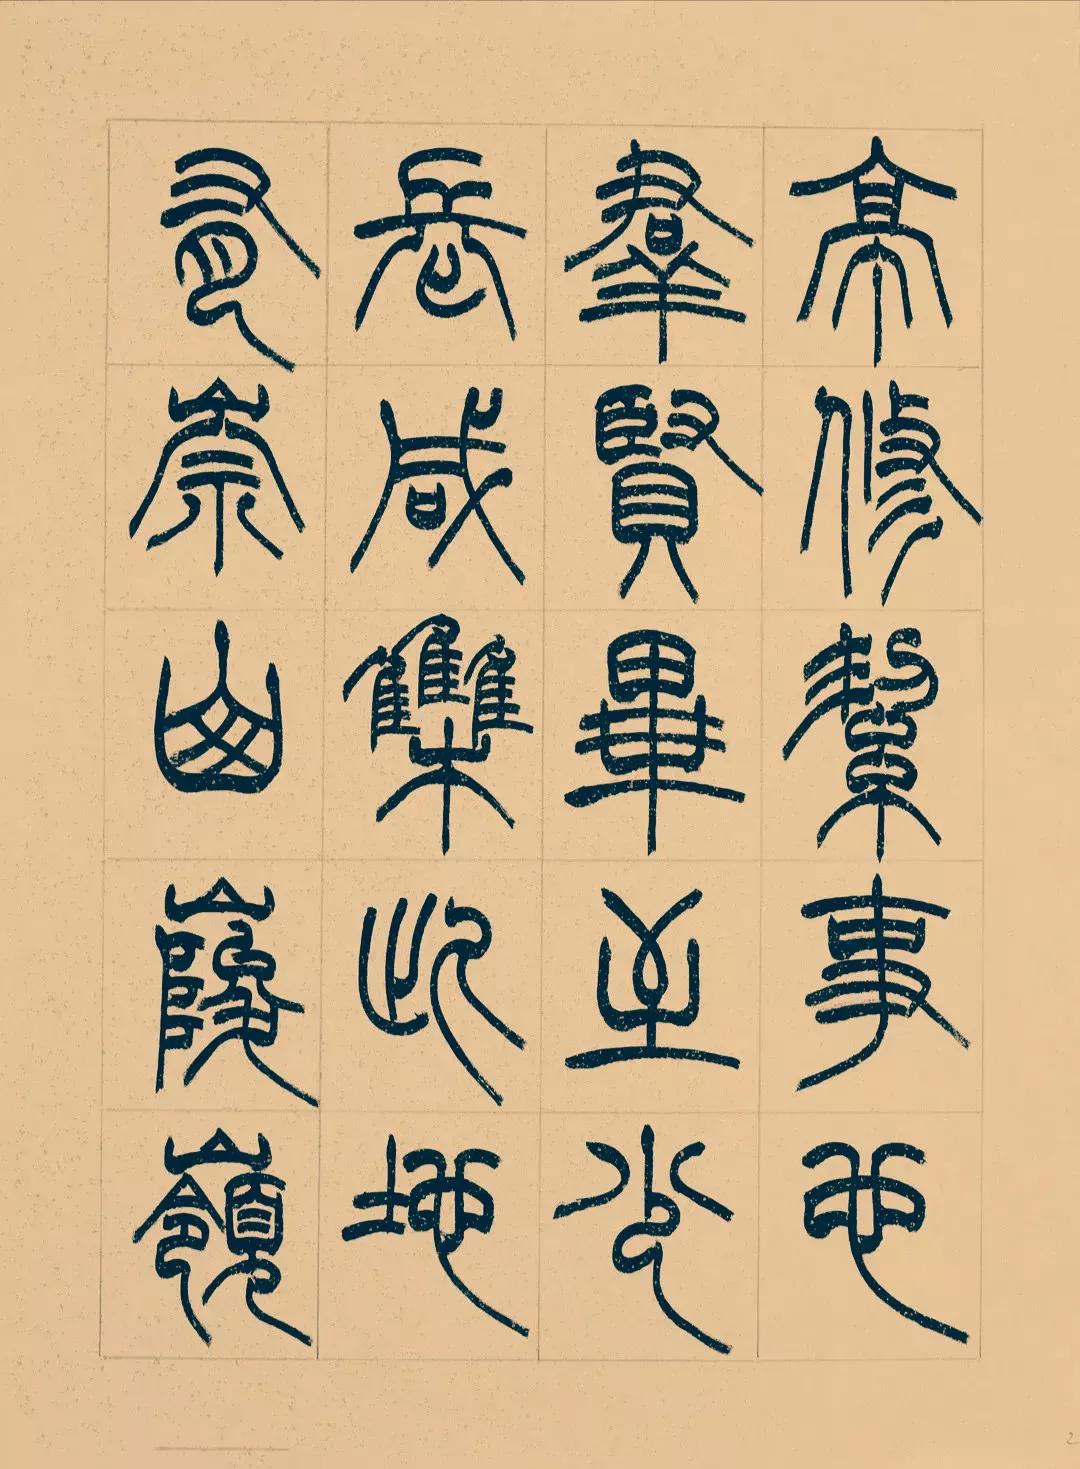 亭修絜事也
羣賢畢至少
長咸集此地
有崇山峻嶺
2